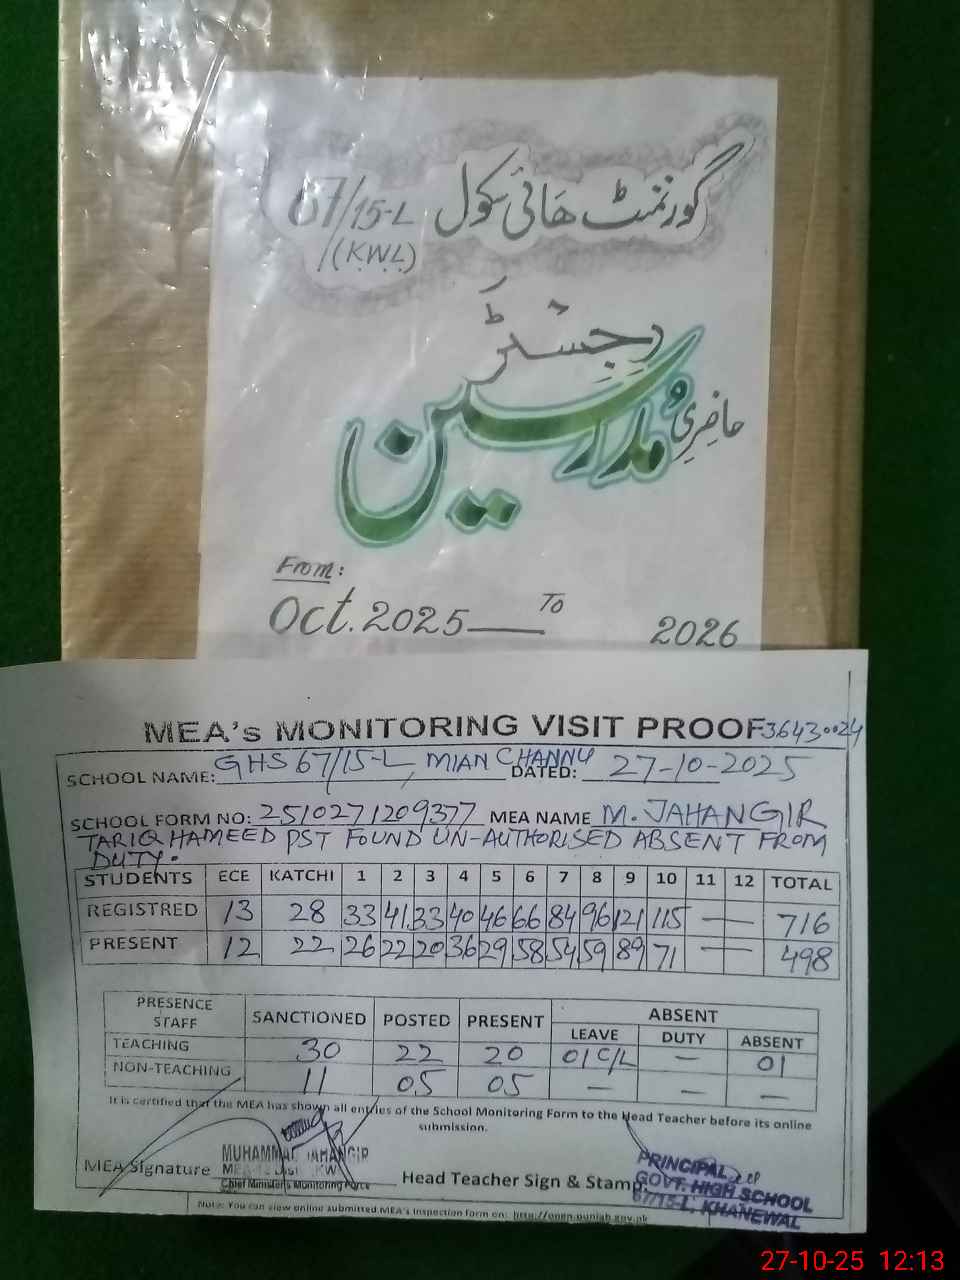 گورنمنٹ ھائی سکول 67/15-L
(K.W.L)
رجسٹر
حاضری مدرسین
From:
Oct. 2025 —— To 2026
MEA's MONITORING VISIT PROOF 36430024
SCHOOL NAME: GHS 67/15-L, MIAN CHANNU DATED: 27-10-2025
SCHOOL FORM NO: 2510271209377 MEA NAME M. JAHANGIR
TARIQ HAMEED PST FOUND UN-AUTHORISED ABSENT FROM
DUTY.
STUDENTS ECE KATCHI 1 2 3 4 5 6 7 8 9 10 11 12 TOTAL
REGISTRED 13 28 33 41 33 40 46 66 84 96 121 115 — — 716
PRESENT 12 22 26 22 20 36 29 58 54 59 89 71 — — 498
PRESENCE STAFF SANCTIONED POSTED PRESENT ABSENT
LEAVE DUTY ABSENT
TEACHING 30 22 20 01 C/L — 01
NON-TEACHING 11 05 05 — — —
It is certified that the MEA has shown all entries of the School Monitoring Form to the Head Teacher before its online
submission.
MEA Signature MUHAMMAD JAHANGIR
Chief Minister's Monitoring Force
Head Teacher Sign & Stamp:
PRINCIPAL
GOVT. HIGH SCHOOL
67/15-L, KHANEWAL
Note: You can view online submitted MEA's Inspection form on: http://open.punjab.gov.pk
27-10-25 12:13